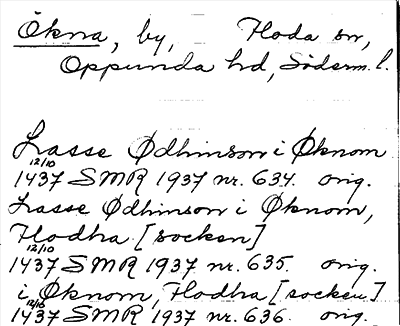 Ökna, by, Floda sn,
Oppunda hd, Söderm. l.
Lasse Ødhinson i Øknom
12/10
1437 SMR 1937 nr. 634. orig.
Lasse Ødhinson i Øknom,
Flodha [socken]
12/10
1437 SMR 1937 nr. 635. orig.
i Øknom, Flodha [socken]
12/10
1437 SMR 1937 nr. 636. orig.